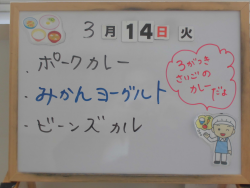 3月14日火
・ポークカレー
・みかんヨーグルト
・ビーンズカル
3がつき
さいごの
カレー
だよ